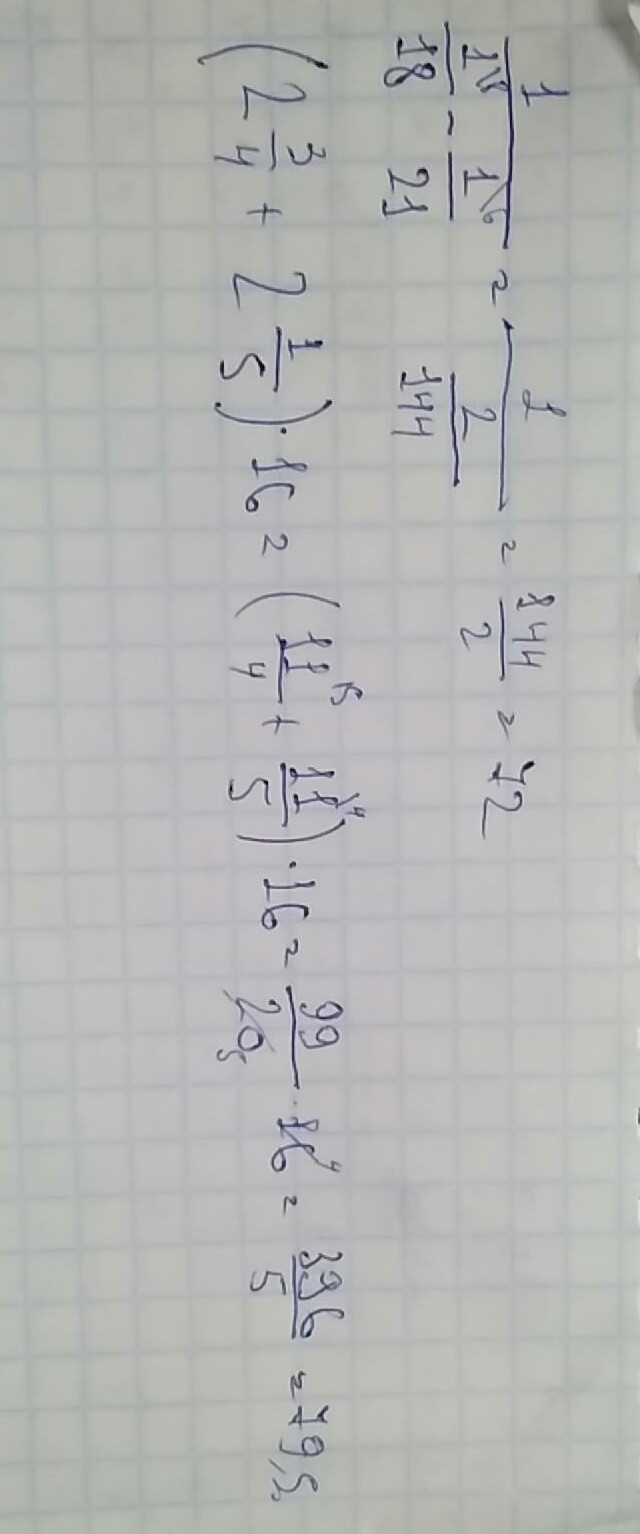 1/(1\8/18 - 1\6/21) = 1/(2/144) = 144/2 = 72
(2 3/4 + 2 1/5) · 16 = (11\5/4 + 11\4/5) · 16 = 99/20 5 · 16 4 = 396/5 = 79,2